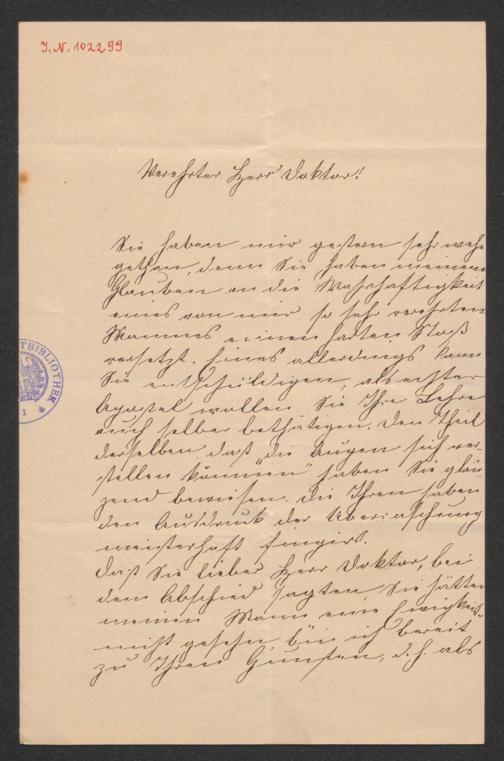 I.N. 102299
Verehrter Herr Doktor!
Sie haben mir gestern sehr wehe
gethan, denn Sie haben meinem
Glauben an die Wahrhaftigkeit
eines von mir so sehr verehrten
Mannes einen harten Stoß
versetzt. Eines allerdings kann
Sie entschuldigen, als echter
Apostel wollen Sie Ihre Lehre
auch selber bethätigen. Den Theil
derselben daß „die Augen sich ver-
stellen können“ haben Sie glän-
zend bewiesen. Die Ihren haben
den Ausdruck der Überraschung
meisterhaft fingirt.
Daß Sie lieber Herr Doktor, bei
dem Abschied sagten Sie hätten
meinen Mann eine Ewigkeit
nicht gesehn, bin ich bereit
zu Ihren Gunsten, d. h. als
TBIBLIOTHEK